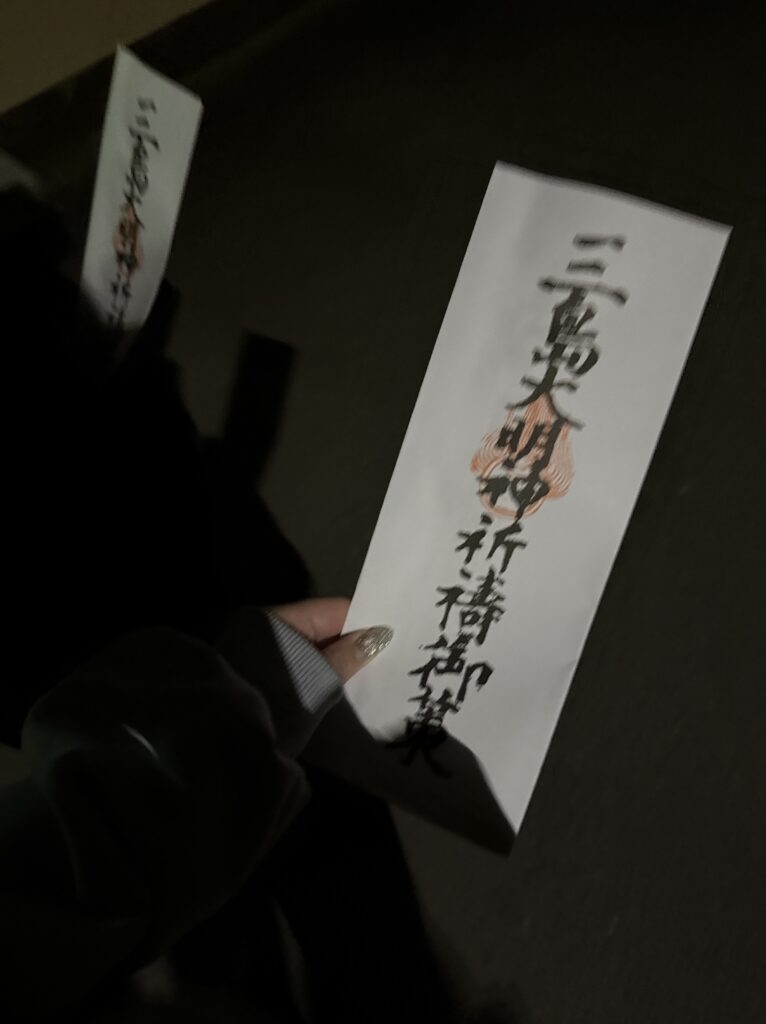 三島大明神祈禱御菓
三島大明神祈